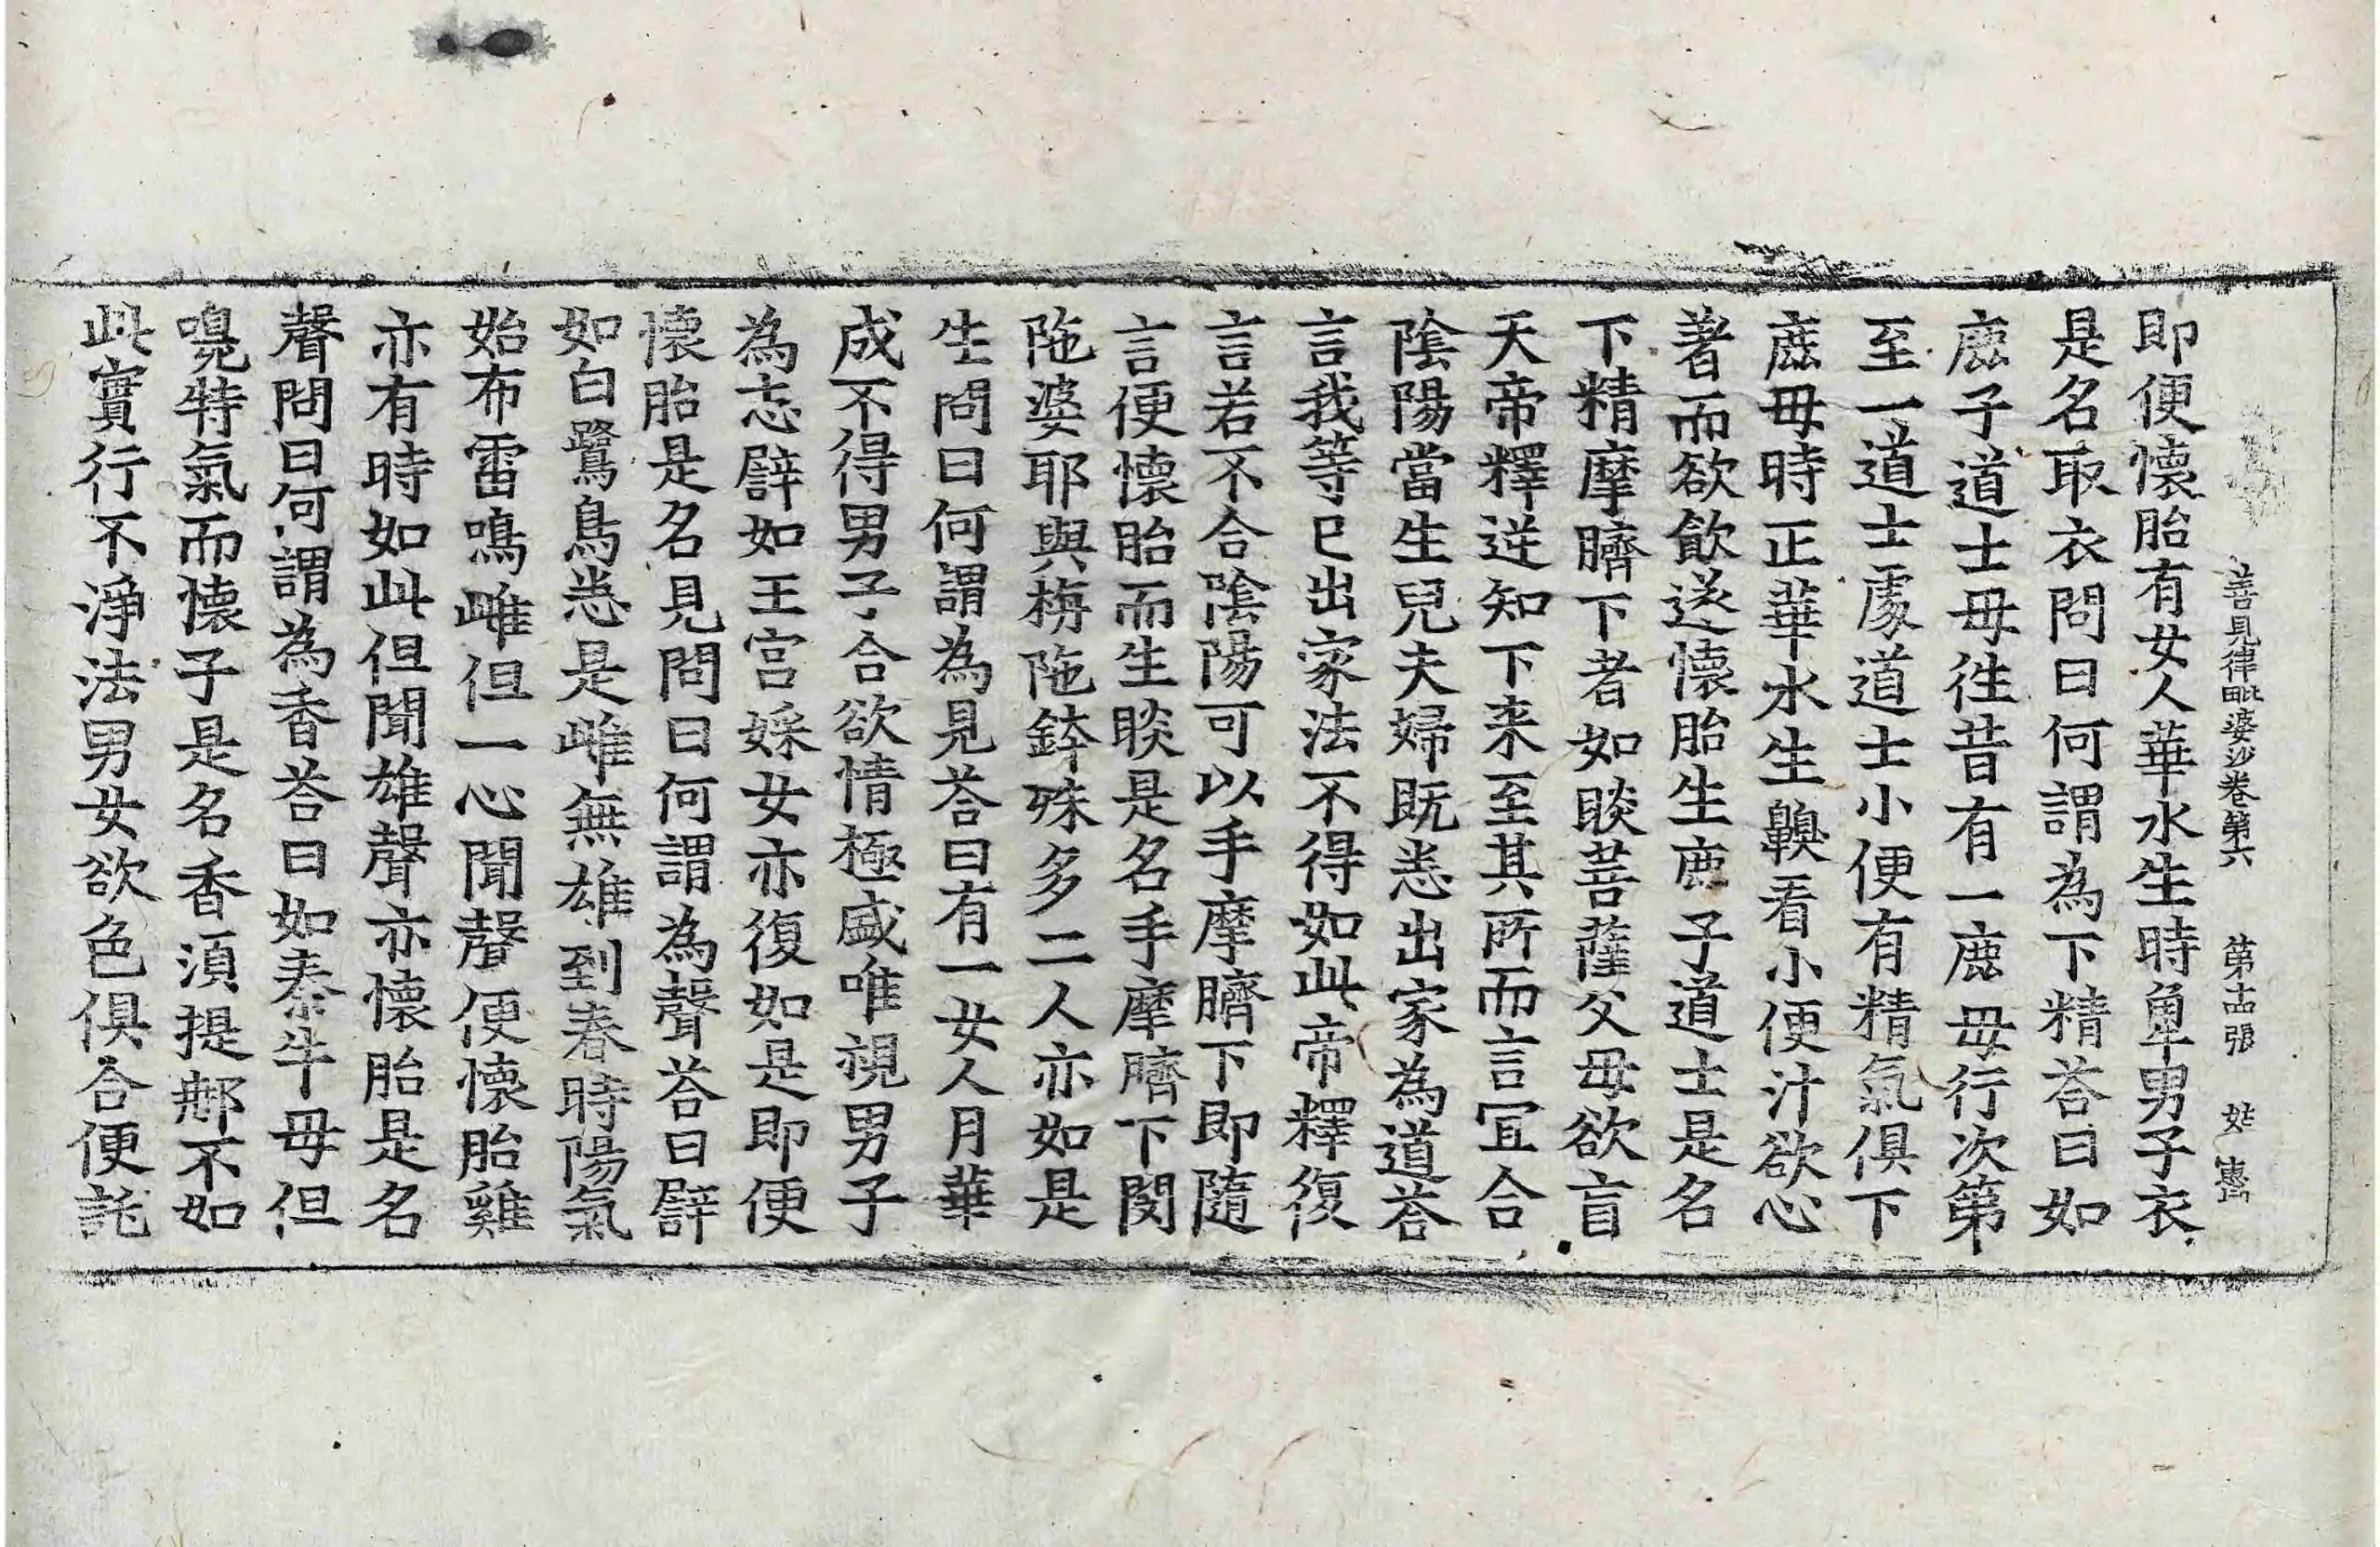 善見律毗婆沙卷第六　第十四張　姑
即便懷胎有女人華水生時嗅男子衣
是名取衣問曰何謂為下精荅曰如
鹿子道士母徃昔有一鹿母行次第
至一道士處道士小便有精氣俱下
鹿母時正華水生齅看小便汁欲心
著而欲飮遂懷胎生鹿子道士是名
下精摩臍下者如睒菩薩父母欲盲
天帝釋逆知下来至其所而言冝合
陰陽當生兒夫婦既悉出家為道荅
言我等已出家法不得如此帝釋復
言若不合陰陽可以手摩臍下即隨
言便懷胎而生睒是名手摩臍下閔
陁婆耶與栴陁鉢殊多二人亦如是
生問曰何謂為見荅曰有一女人月華
成不得男子合欲情極盛唯視男子
為志譬如王宮婇女亦復如是即便
懷胎是名見問曰何謂為聲荅曰譬
如白鷺鳥悉是雌無雄到春時陽氣
始布雷鳴雌但一心聞聲便懷胎雞
亦有時如此但聞雄聲亦懷胎是名
聲問曰何謂為香荅曰如秦牛母但
嗅特氣而懷子是名香湏提那不如
此實行不淨法男女欲色俱合便託